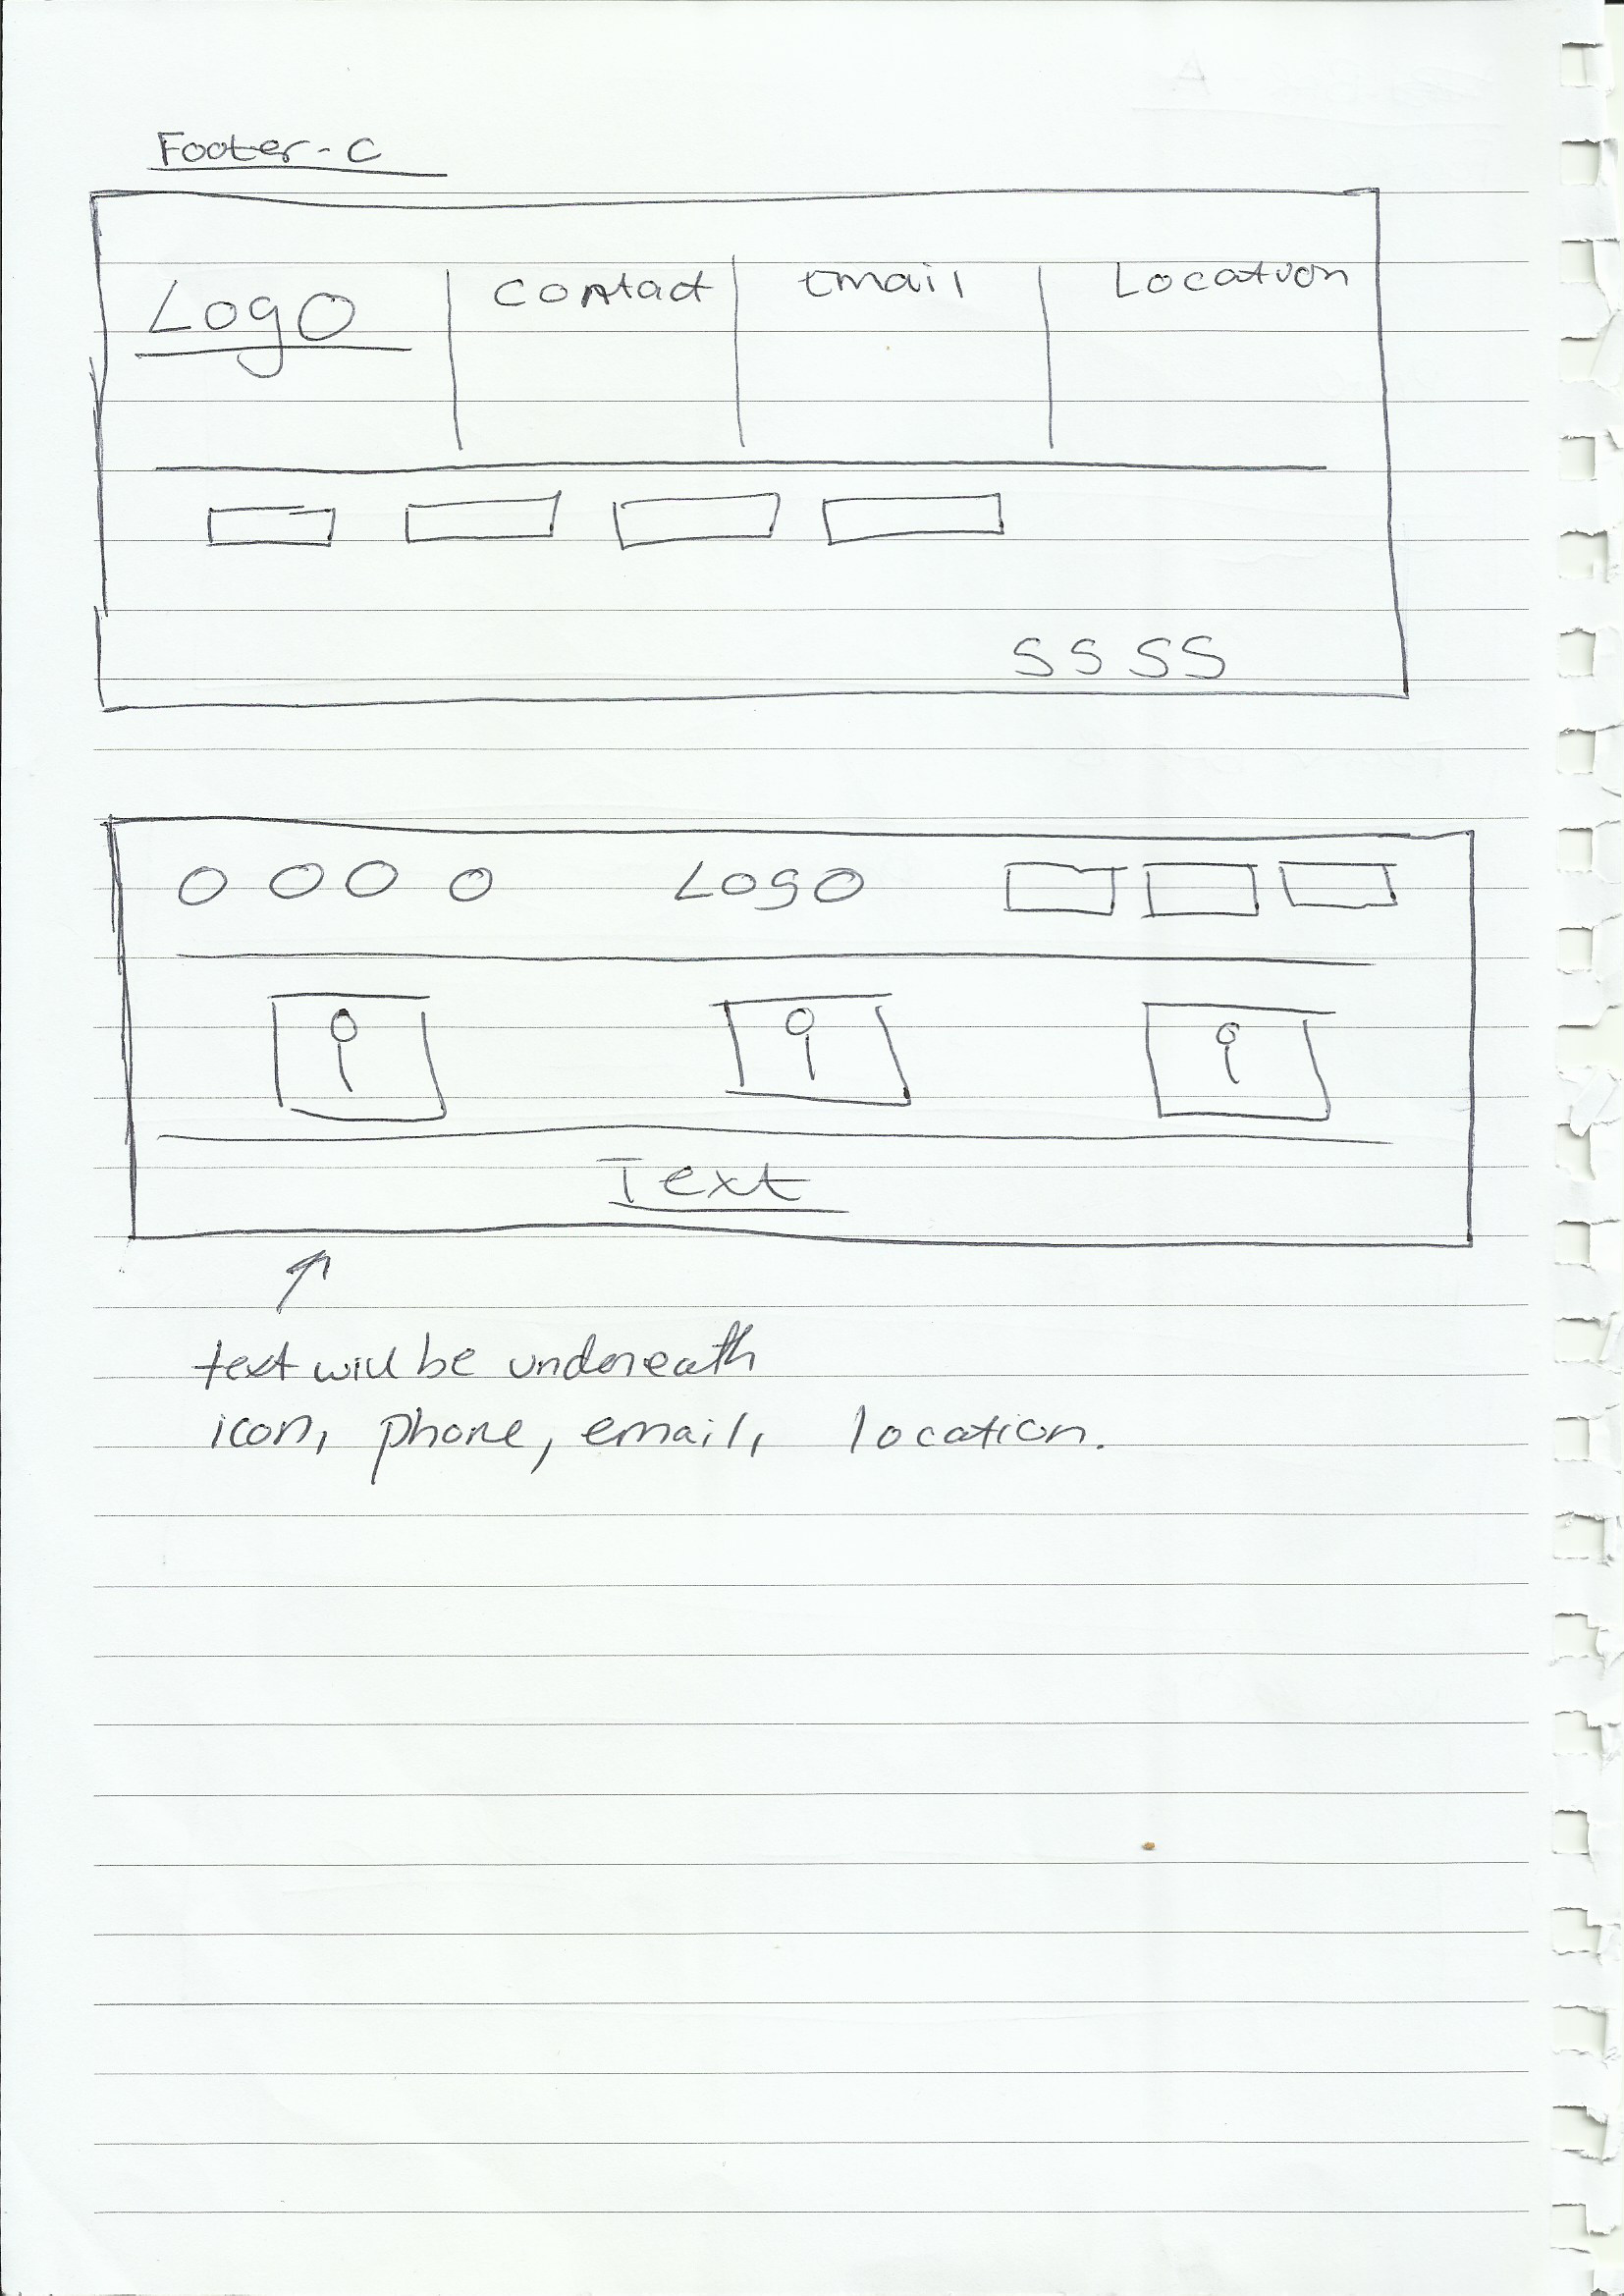 Footer - C
Logo Contact Email Location
SSSS
Logo
Text
text will be underneath
icon, phone, email, location.